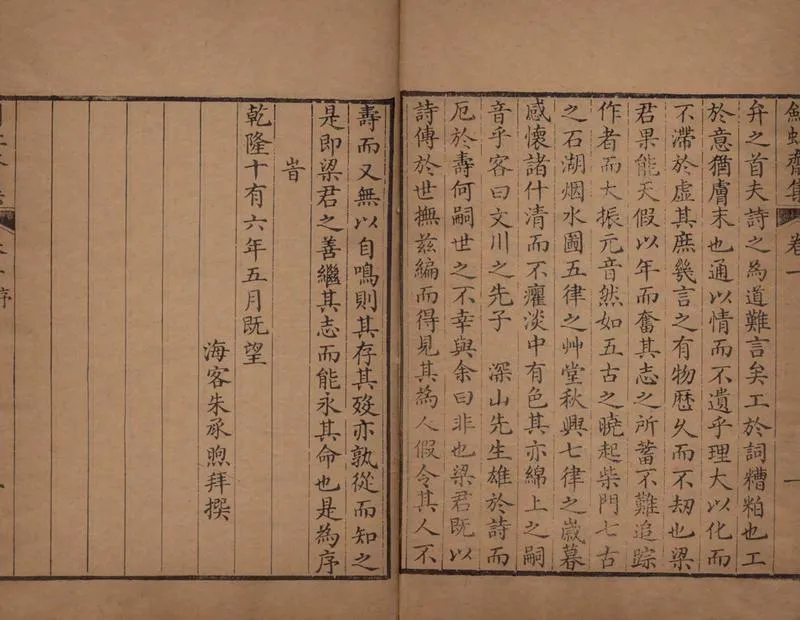 齋集
卷一
一
弁之首夫詩之為道難言矣工於詞糟粕也工
於意猶膚末也通以情而不遺乎理大以化而
不滯於虛其庶幾言之有物歷久而不劫也梁
君果能天假以年而奮其志之所蓄不難追踪
作者而大振元音然如五古之曉起柴門七古
之石湖烟水圖五律之艸堂秋興七律之歲暮
感懷諸什清而不癯淡中有色其亦綿上之嗣
音乎客曰文川之先子 深山先生雄於詩而
厄於壽何嗣世之不幸與余曰非也梁君既以
詩傳於世撫茲編而得見其為人假令其人不
壽而又無以自鳴則其存其歿亦孰從而知之
是即梁君之善繼其志而能永其命也是為序
旹
乾隆十有六年五月既望
海客朱承煦拜撰
序